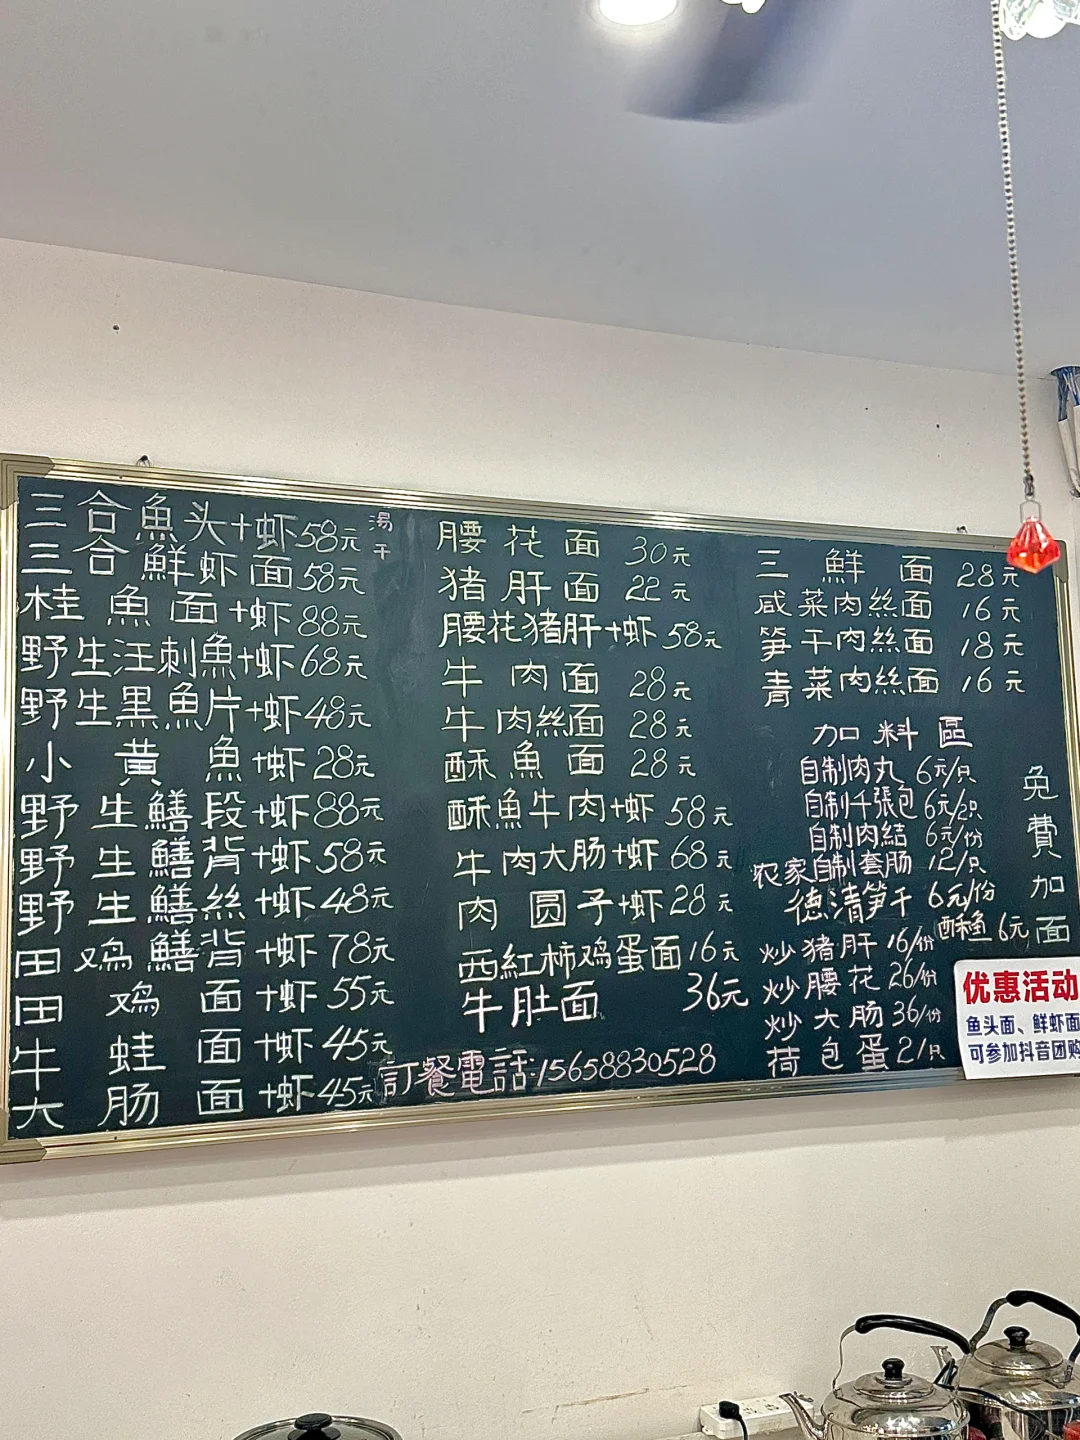 三合魚头+虾58元
湯
干
三合鮮虾面58元
桂魚面+虾88元
野生汪刺魚+虾68元
野生黑魚片+虾48元
小黃魚+虾28元
野生鱔段+虾88元
野生鱔背+虾58元
野生鱔絲+虾48元
田鸡鱔背+虾78元
田鸡面+虾55元
牛蛙面+虾45元
大肠面+虾45元
腰花面30元
猪肝面22元
腰花猪肝+虾58元
牛肉面28元
牛肉絲面28元
酥魚面28元
酥魚牛肉+虾58元
牛肉大肠+虾68元
肉圆子+虾28元
西紅柿鸡蛋面16元
牛肚面36元
訂餐電話:15658830528
三鮮面28元
咸菜肉絲面16元
笋干肉絲面18元
青菜肉絲面16元
加料區
自制肉丸6元/只
自制千張包6元/2只
自制肉結6元/份
农家自制套肠12/只
德清笋干6元/份
酥鱼6元
炒猪肝16/份
炒腰花26/份
炒大肠36/份
荷包蛋2/只
免費加面
优惠活动
鱼头面、鲜虾面
可参加抖音团购